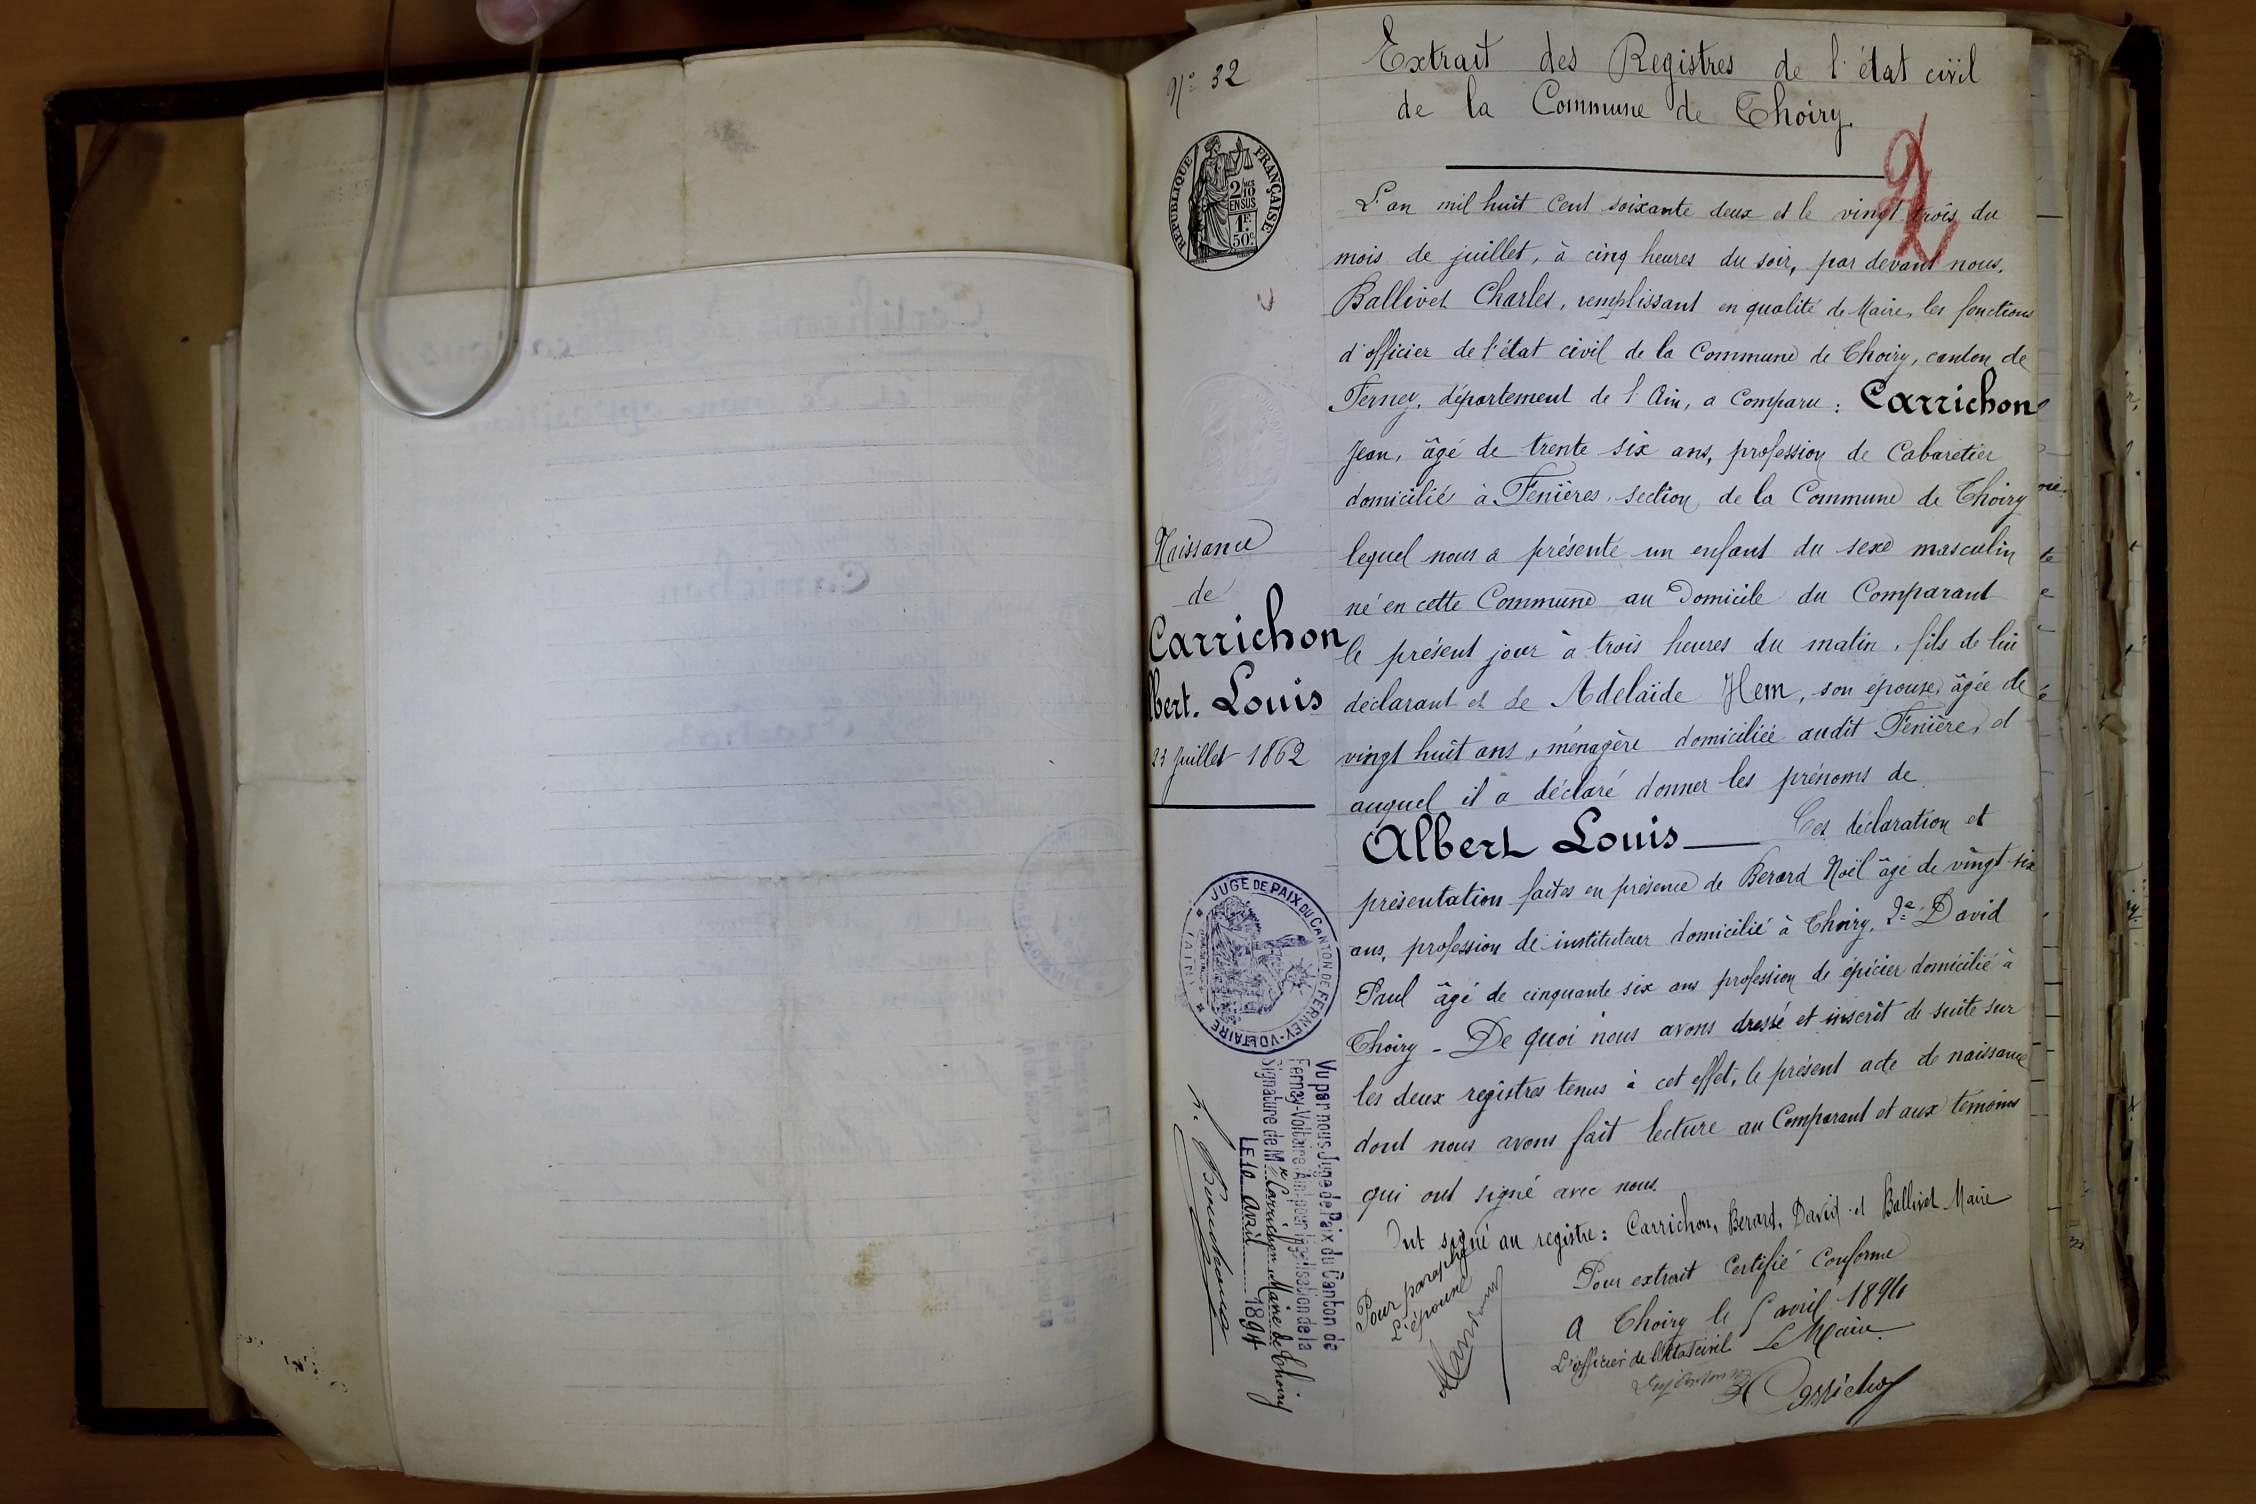 N° 32
Extrait des Registres de l'état civil
de la Commune de Thoiry
2
RÉPUBLIQUE FRANÇAISE
2/10
EN SUS
1F.
50c
L'an mil huit cent soixante deux et le vingt trois du
mois de juillet, à cinq heures du soir, par devant nous,
Ballivet Charles, remplissant en qualité de Maire, les fonctions
d'officier de l'état civil de la Commune de Thoiry, canton de
Ferney, département de l'Ain, a comparu : Carrichon
Jean, âgé de trente six ans, profession de Cabaretier
domicilié à Fenières, section de la Commune de Thoiry
lequel nous a présenté un enfant du sexe masculin
né en cette Commune au Domicile du Comparant
le présent jour à trois heures du matin, fils de lui
déclarant et de Adelaïde Hem, son épouse, âgée de
vingt huit ans, ménagère domiciliée audit Fenière, et
auquel il a déclaré donner les prénoms de
Albert Louis — Ces déclaration et
présentation faites en présence de Berard Noël âgé de vingt six
ans, profession de instituteur domicilié à Thoiry, 2e David
Paul âgé de cinquante six ans profession de épicier domicilié à
Thoiry - De quoi nous avons dressé et inscrit de suite sur
les deux registres tenus à cet effet, le présent acte de naissance
dont nous avons fait lecture au Comparant et aux témoins
qui ont signé avec nous.
Ont signé au registre : Carrichon, Berard, David et Ballivet Maire
Pour extrait Certifié Conforme
A Thoiry le 5 avril 1894
L'officier de l'état civil Le Maire
Carrichon
Pour paraphe
L'épouse
Naissance
de
Carrichon
lbert. Louis
23 Juillet 1862
JUGE DE PAIX DU CANTON DE FERNEY-VOLTAIRE
(AIN)
Vu par nous, Juge de Paix du Canton de
Ferney-Voltaire (Ain) pour légalisation de la
Signature de Mr Carrichon Maire de Thoiry
LE 10 Avril 1894